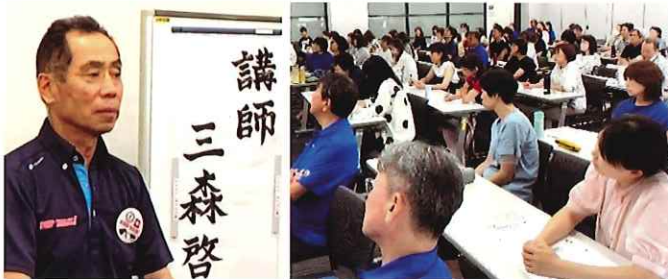 講師
三森啓